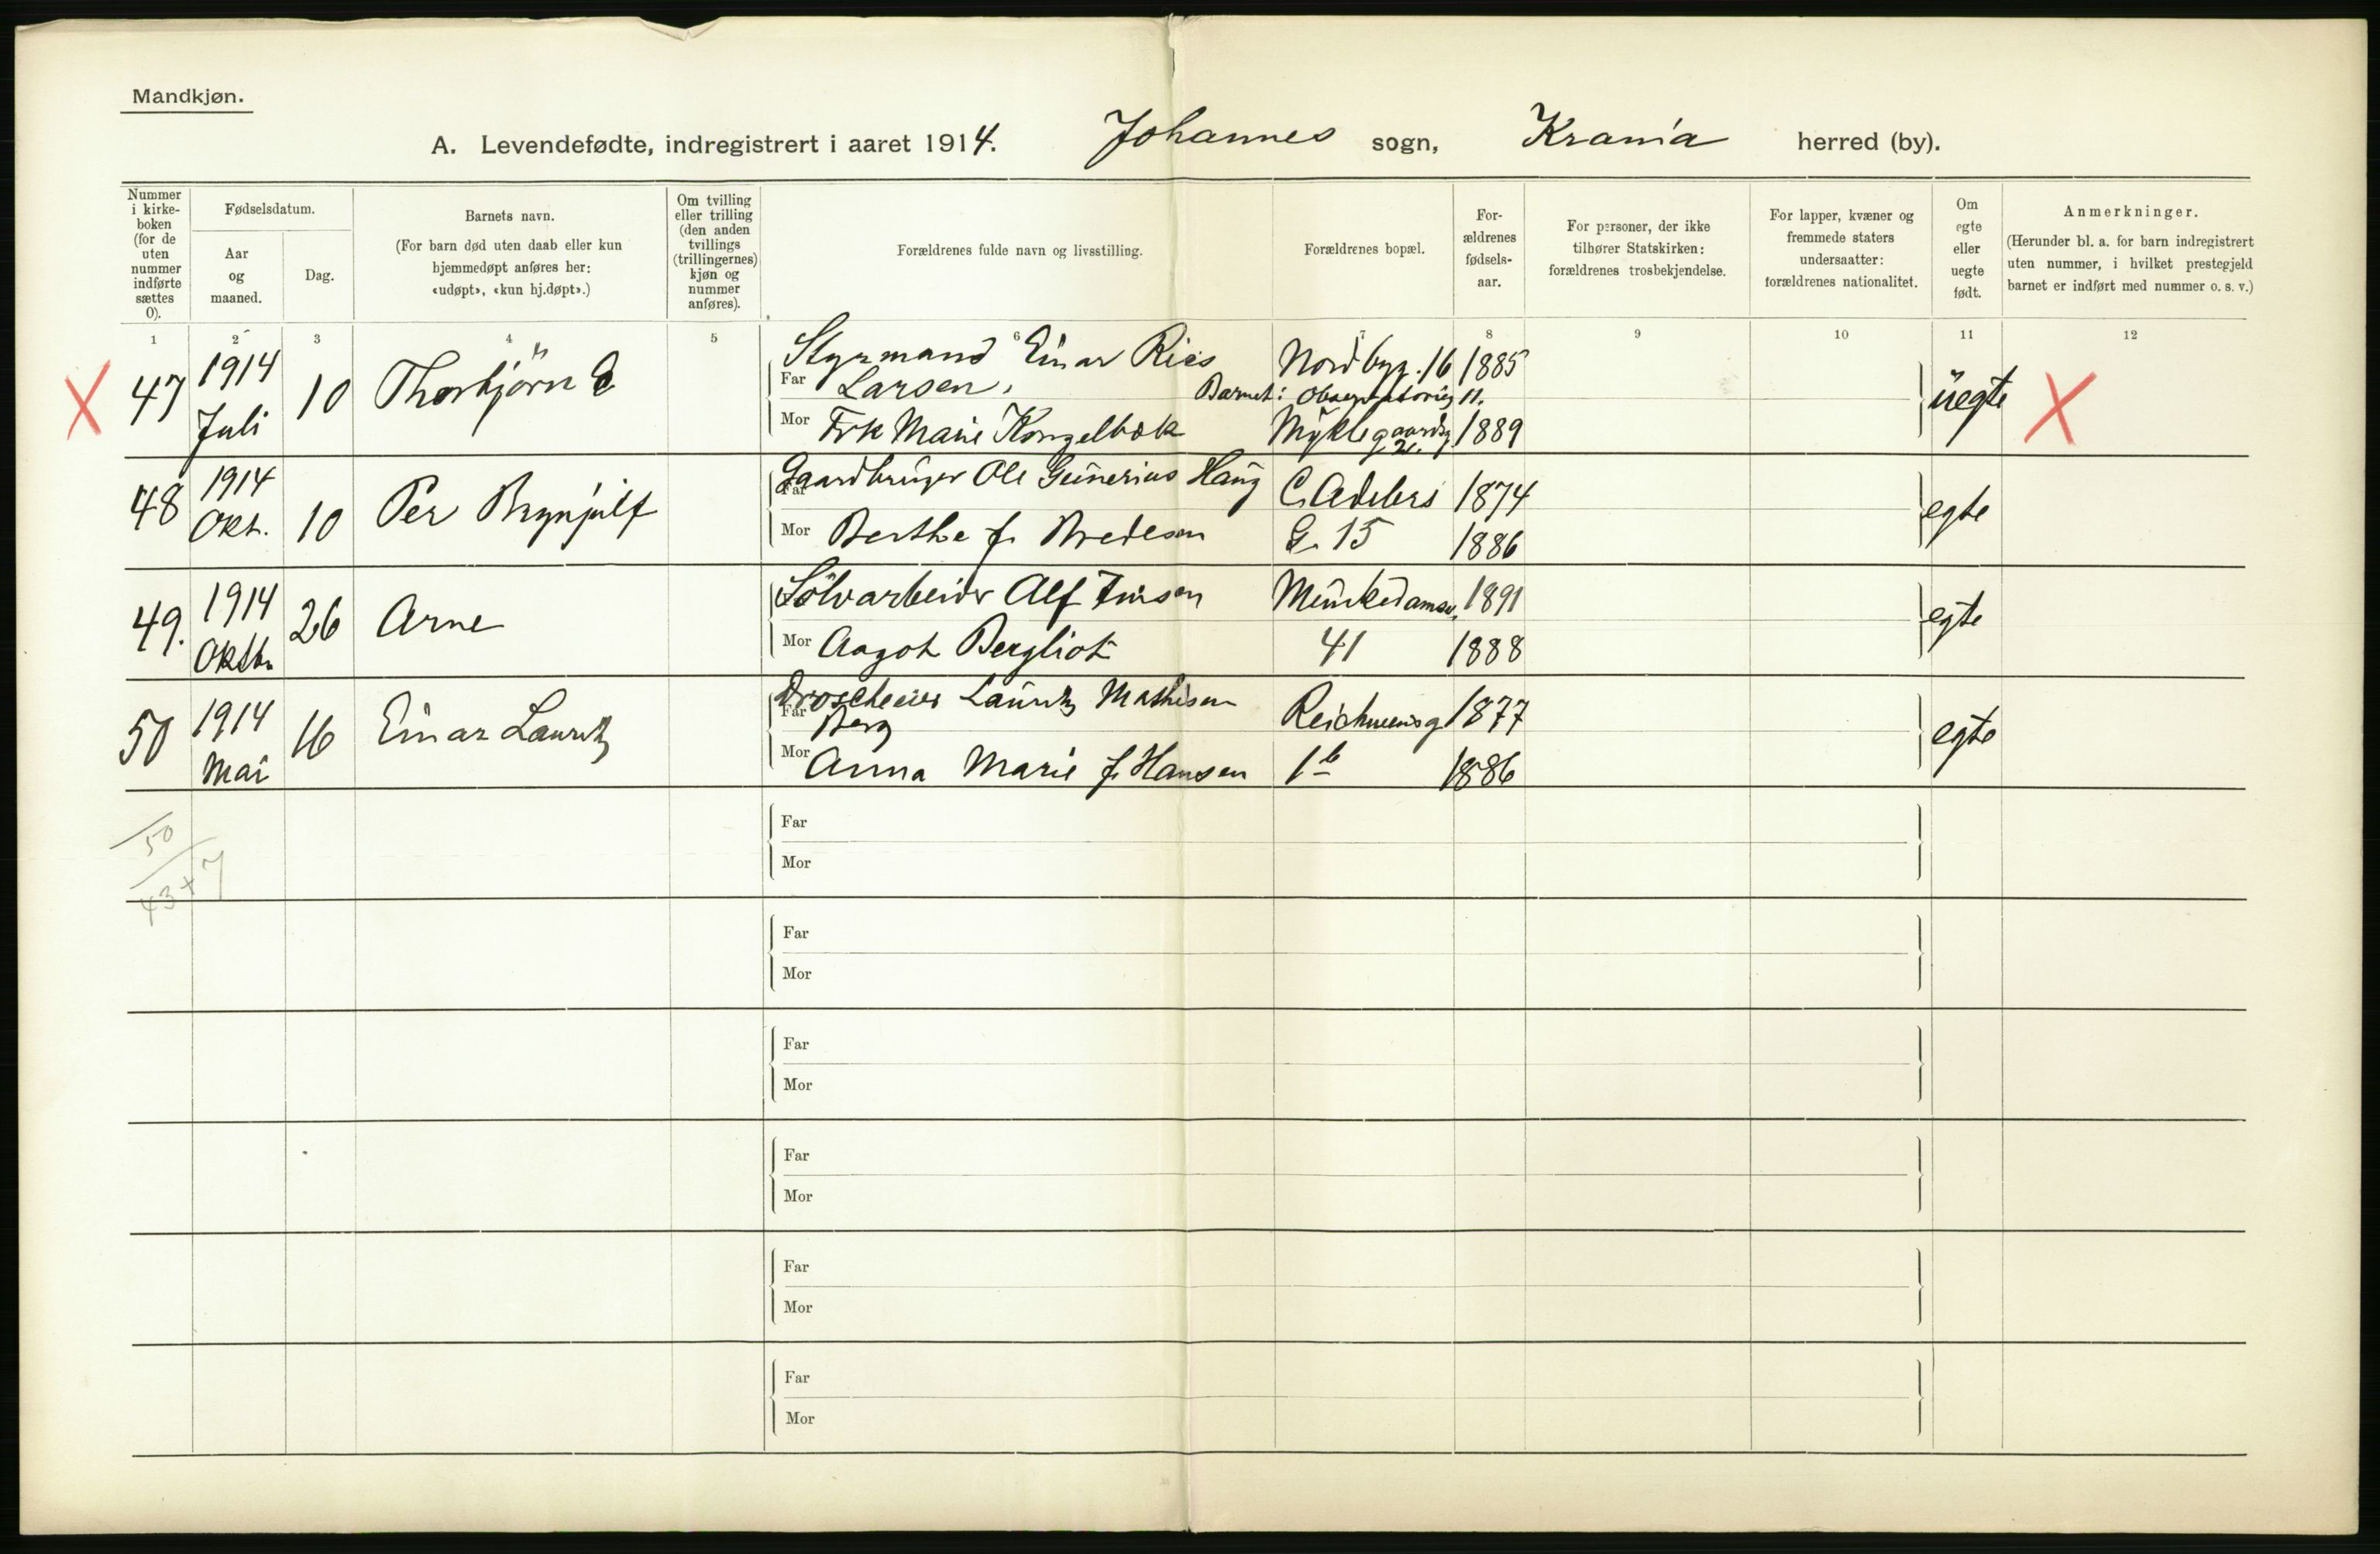 Mandkjøn.
A. Levendefødte, indregistrert i aaret 1914. Johannes sogn, Krania herred (by).
Nummer i kirke-boken (for de uten nummer indførte sættes 0).
Fødselsdatum.
Aar og maaned.
Dag.
Barnets navn.
(For barn død uten daab eller kun hjemmedøpt anføres her: «udøpt», «kun hj.døpt».)
Om tvilling eller trilling (den anden tvillings (trillingernes) kjøn og nummer anføres).
Forældrenes fulde navn og livsstilling.
Forældrenes bopæl.
For-ældrenes fødsels-aar.
For personer, der ikke tilhører Statskirken: forældrenes trosbekjendelse.
For lapper, kvæner og fremmede staters undersaatter: forældrenes nationalitet.
Om egte eller uegte født.
Anmerkninger.
(Herunder bl. a. for barn indregistrert uten nummer, i hvilket prestegjeld barnet er indført med nummer o. s. v.)
1 2 3 4 5 6 7 8 9 10 11 12
X 47 1914 Juli 10 Thorbjörn E
Far Styrmand Einar Larsen Nordbyg. 16 1885
Barnet: 11.
Mor Frk Marie Kongelbæk 1889
uegte X
48 1914 Okt. 10 Per Brynjulf
Far Gaardbruger Ole Gunerius Haug C. Adelers 1874
Mor Berthe f. Bredesen G. 15 1886
egte
49. 1914 Oktb. 26 Arne
Sölvarbeider Alf Munkedamsv. 1891
Mor Aagot Bergliot 41 1888
egte
50 1914 Mai 16 Einar Lauritz
Far Droscheeier Lauritz Mathisen Berg 1877
Mor Anna Marie f. Hansen 1b 1886
egte
50
43+7
Far
Mor
Far
Mor
Far
Mor
Far
Mor
Far
Mor
Far
Mor